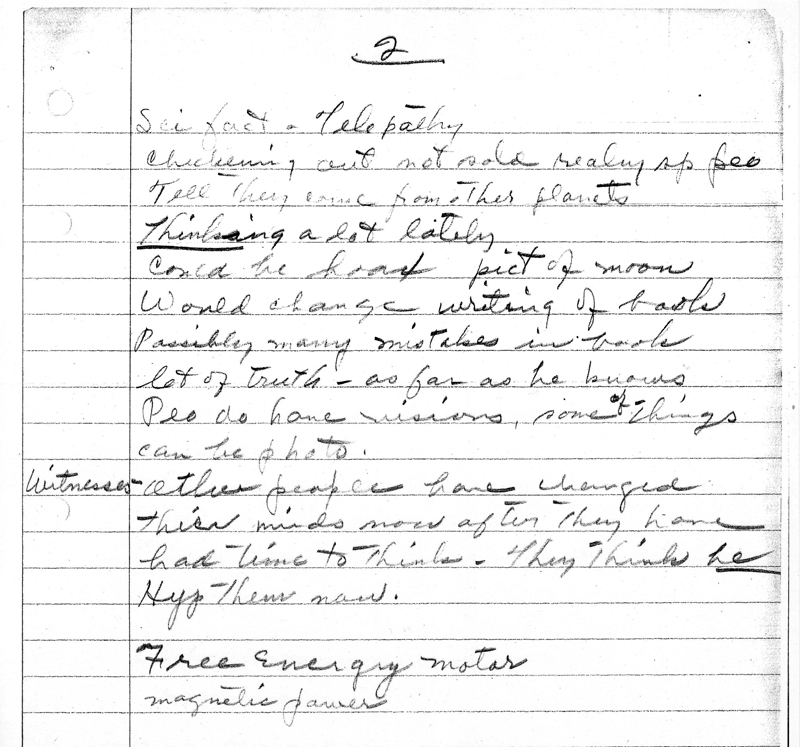 2
Sci fact - Telepathy
checking out not sold realy sp peo
Tell They come from other planets
Thinking a lot lately
Could be hoax pict of moon
Would change writing of book
Possibly many mistakes in book
lot of truth - as far as he knows
Peo do have visions, some of things
can be photo.
Witnesses - other people have changed
their minds now after They have
had time to Think - They Think he
Hyp Them now.
Free Energry motor
magnetic power